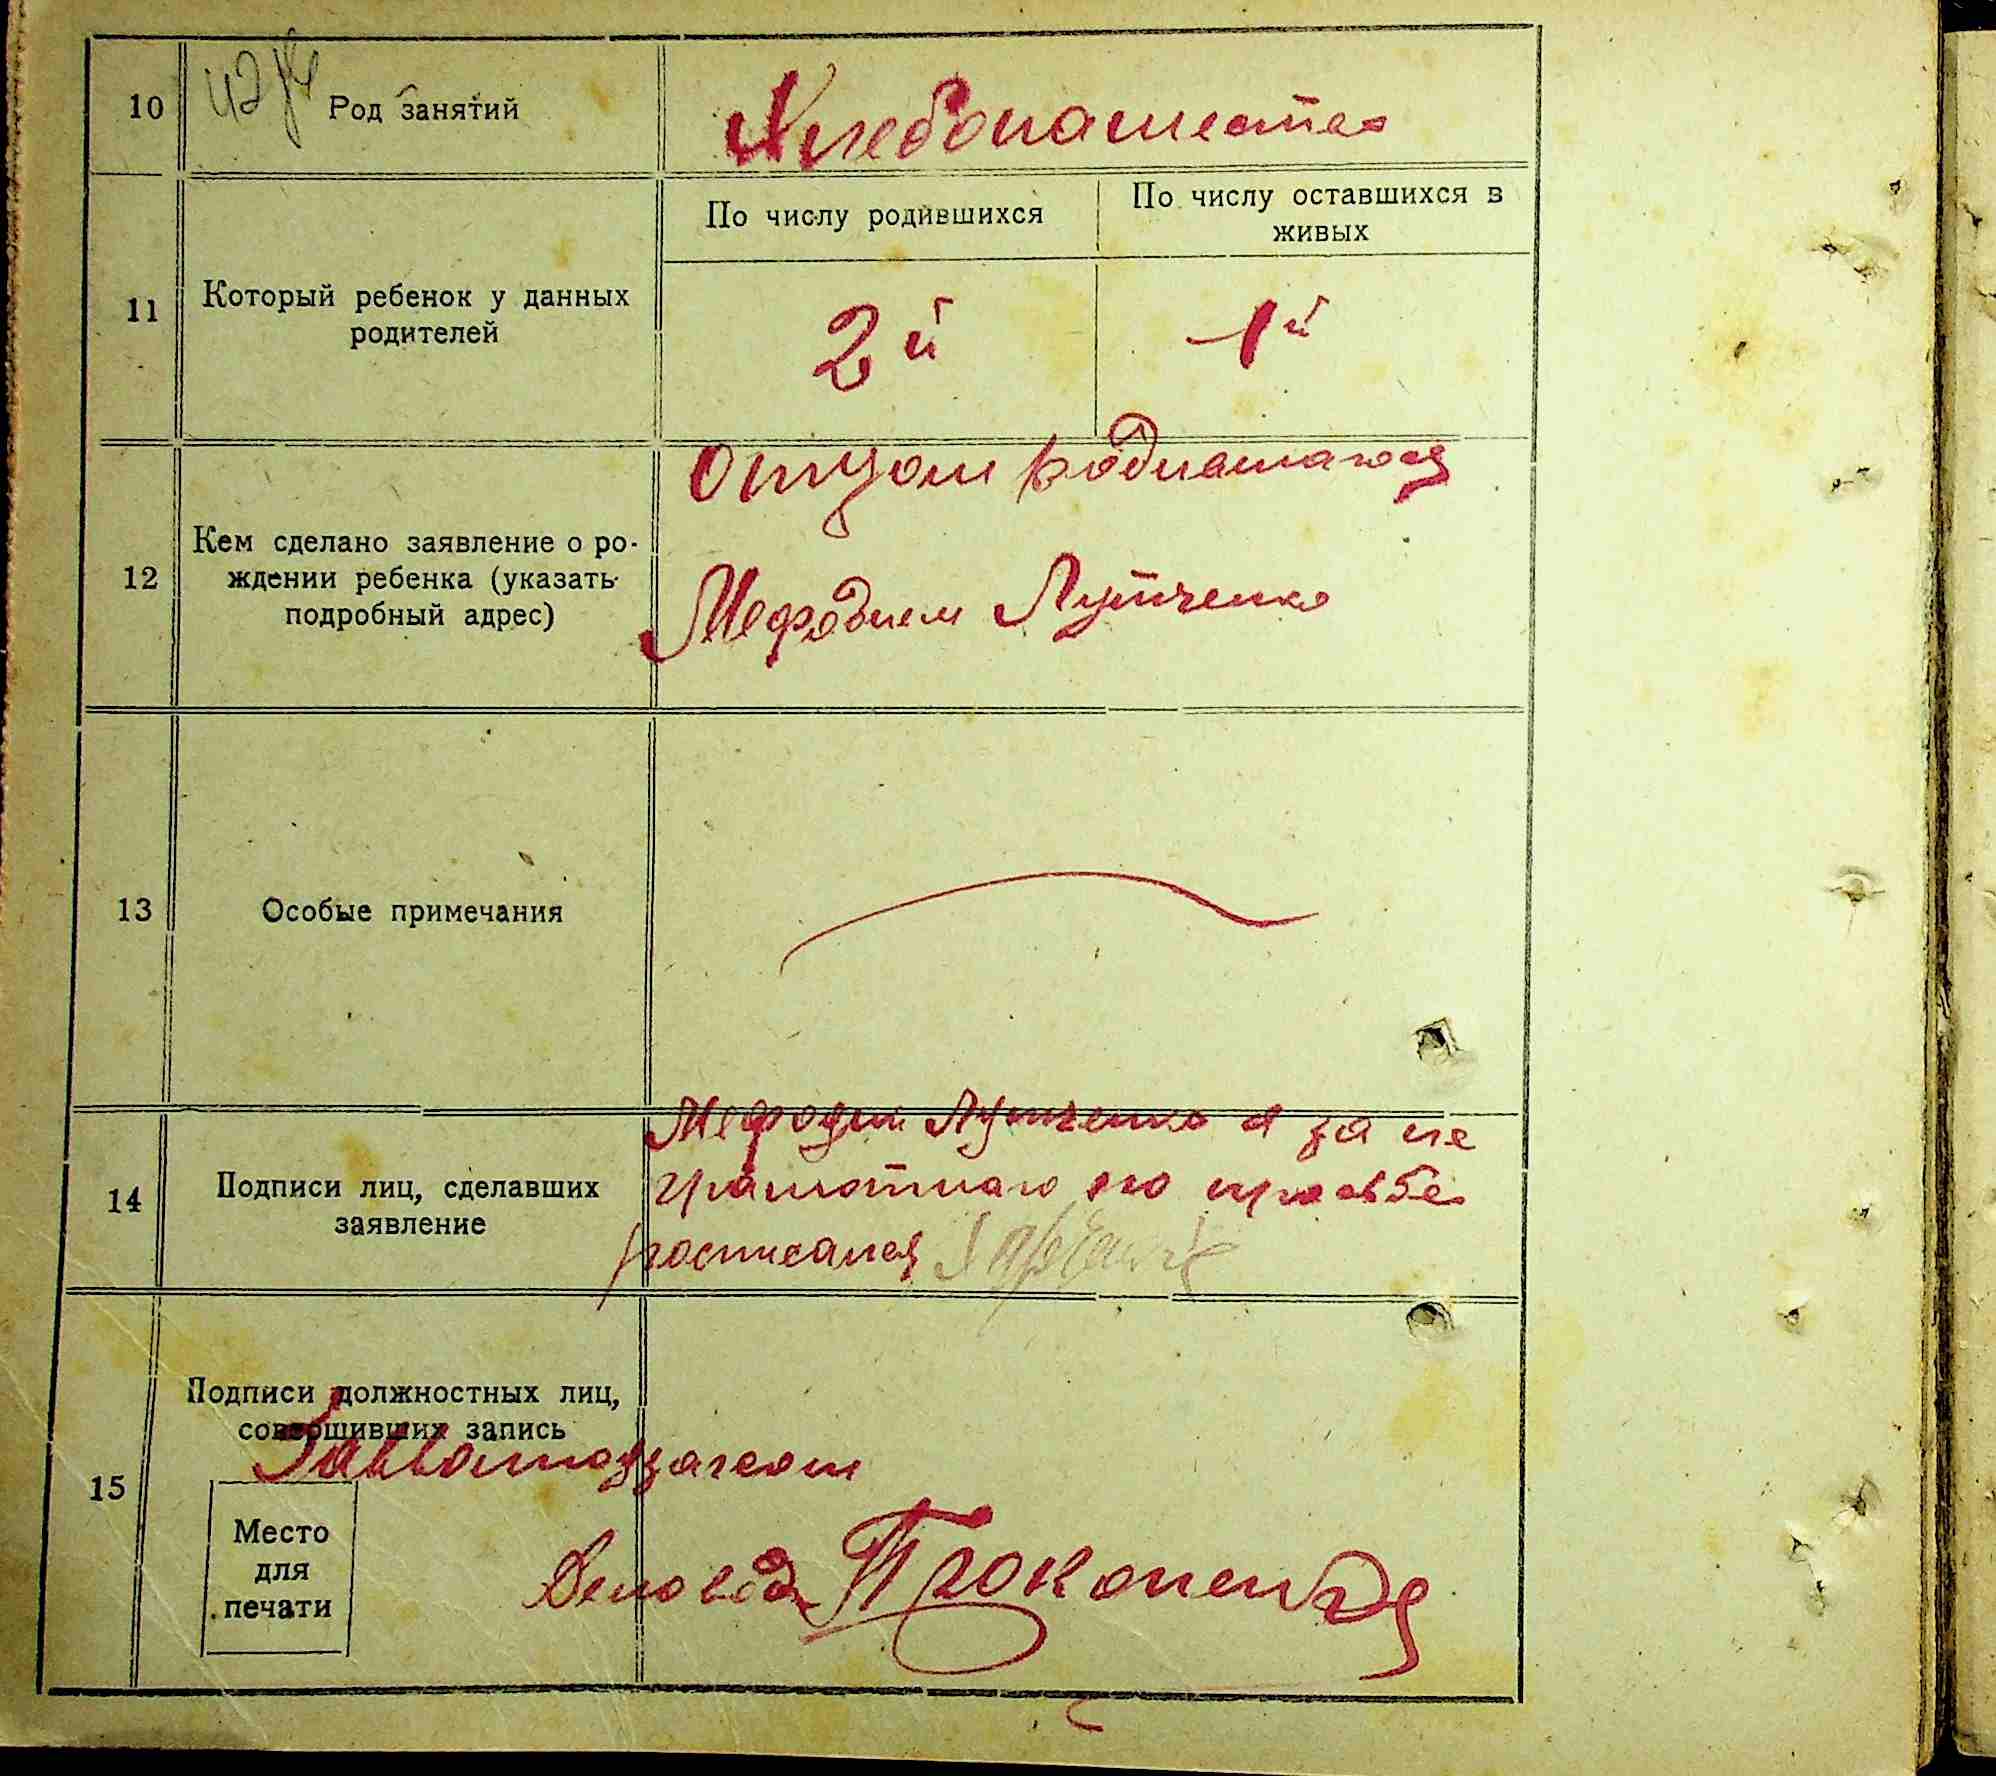 10 Род занятий Хлебопашество
11 Который ребенок у данных
родителей
По числу родившихся
По числу оставшихся в
живых
2й 1й
12 Кем сделано заявление о ро-
ждении ребенка (указать
подробный адрес)
Отцом родившагося
Мефодием Лутченко
13 Особые примечания
14 Подписи лиц, сделавших
заявление
Мефодий Лутченко а за не
грамотнаго его просьбе
росписался
15 Подписи должностных лиц,
совершивших запись
Завволподзагсом
Место
для
печати
Деловод Прокопенко